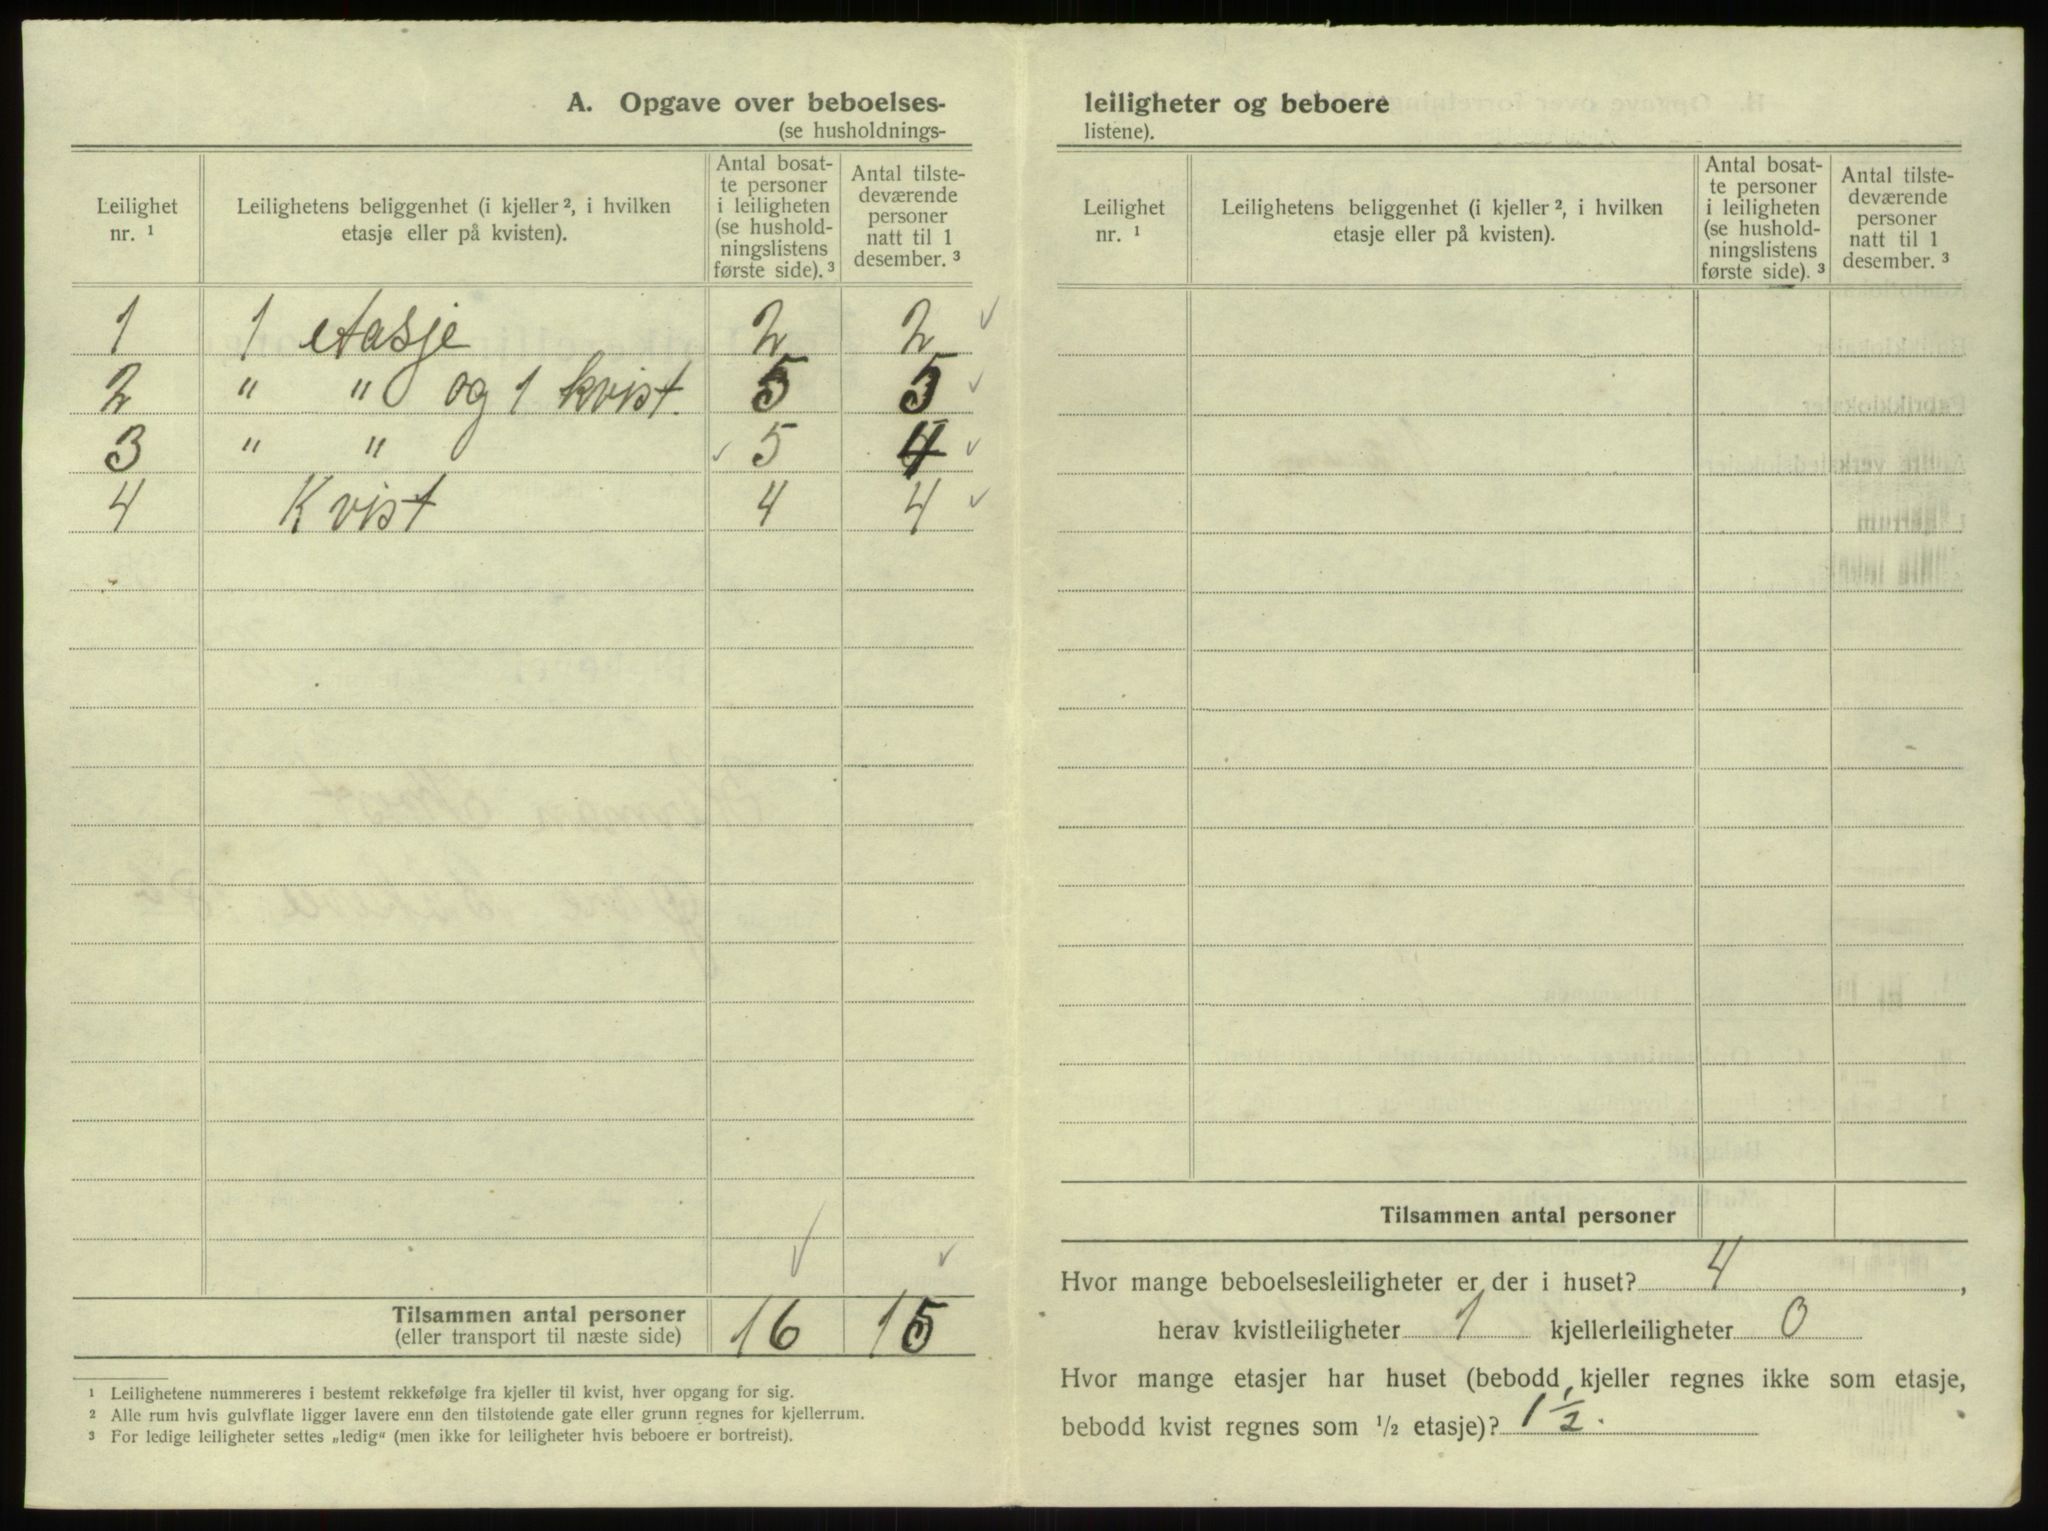 A. Opgave over beboelses-
(se husholdnings-
Leilighet nr. ¹
Leilighetens beliggenhet (i kjeller ², i hvilken etasje eller på kvisten).
Antal bosat-
te personer
i leiligheten
(se hushold-
ningslistens
første side). ³
Antal tilste-
deværende
personer
natt til 1
desember. ³
1 1 etasje 2 2 ✓
2 " " og 1 kvist. 5 5 ✓
3 " " ✓ 5 4 ✓
4 Kvist 4 4 ✓
✓ ✓
Tilsammen antal personer 16 15
(eller transport til næste side)
¹ Leilighetene nummereres i bestemt rekkefølge fra kjeller til kvist, hver opgang for sig.
² Alle rum hvis gulvflate ligger lavere enn den tilstøtende gate eller grunn regnes for kjellerrum.
³ For ledige leiligheter settes „ledig“ (men ikke for leiligheter hvis beboere er bortreist).
leiligheter og beboere
listene).
Leilighet nr. ¹
Leilighetens beliggenhet (i kjeller ², i hvilken etasje eller på kvisten).
Antal bosat-
te personer
i leiligheten
(se hushold-
ningslistens
første side). ³
Antal tilste-
deværende
personer
natt til 1
desember. ³
Tilsammen antal personer
Hvor mange beboelsesleiligheter er der i huset? 4 ,
herav kvistleiligheter 1 kjellerleiligheter 0
Hvor mange etasjer har huset (bebodd kjeller regnes ikke som etasje,
bebodd kvist regnes som ½ etasje)? 1 ½.